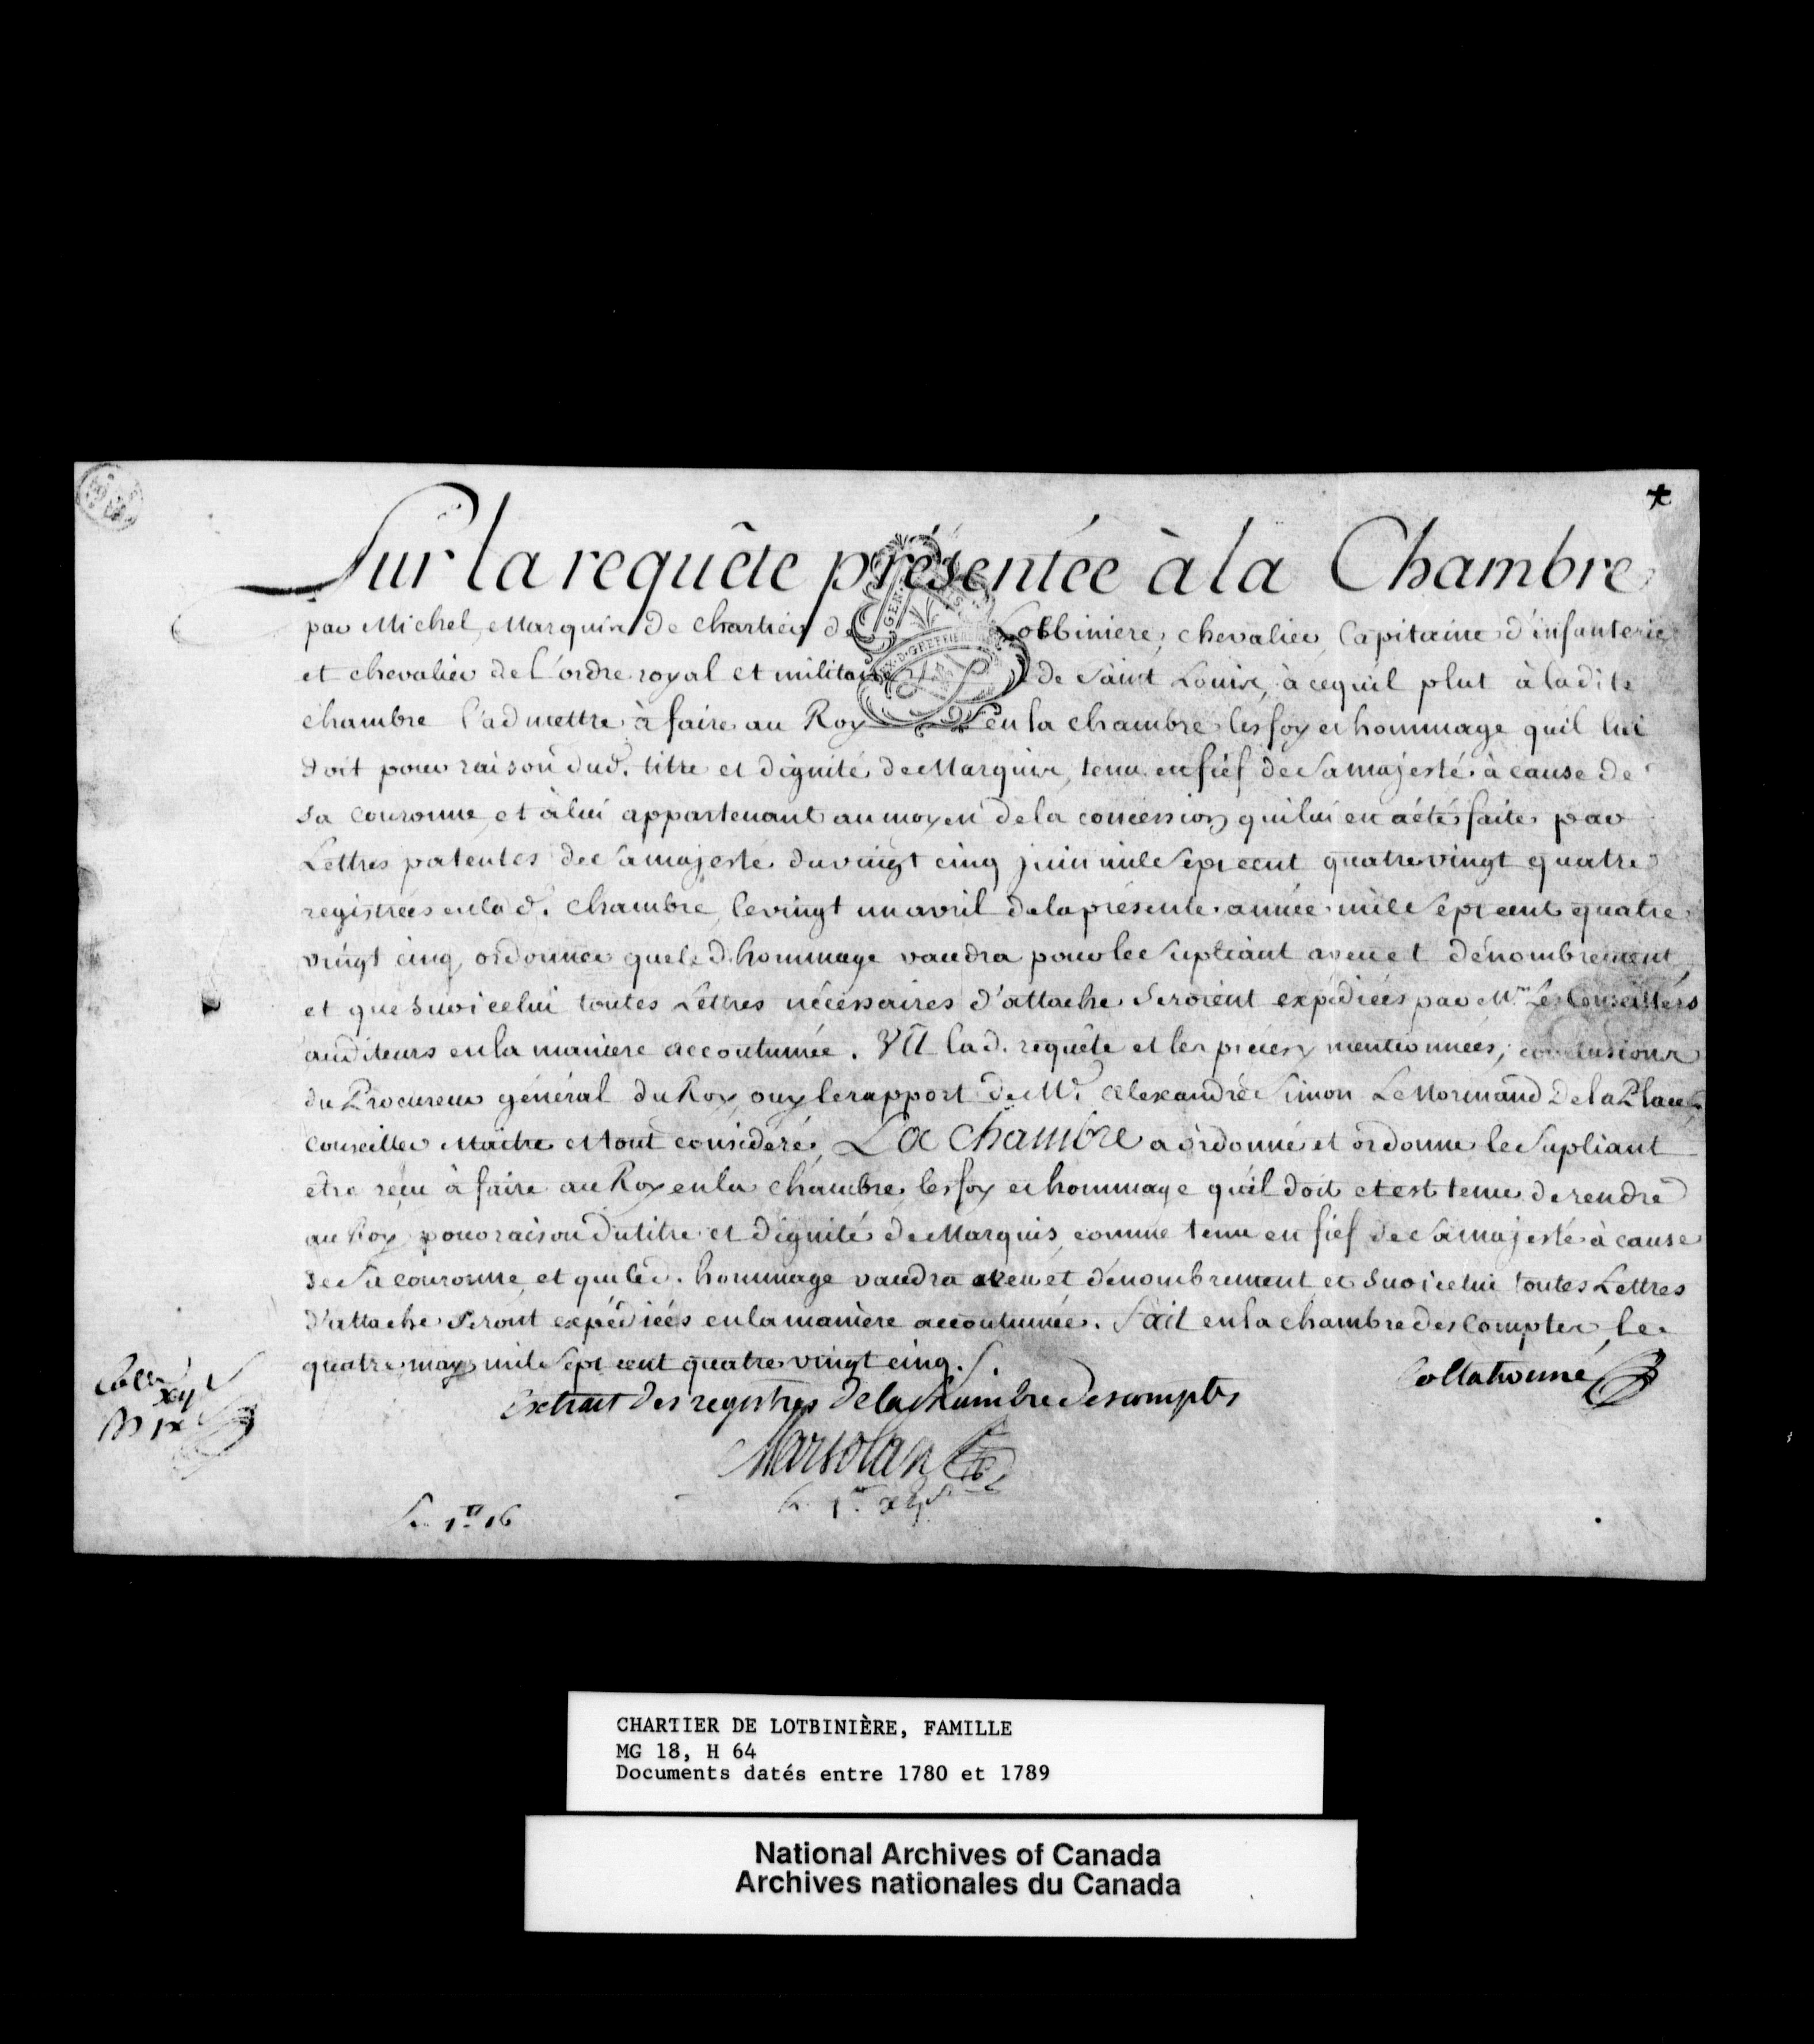 Sur la requête présentée à la Chambre
par Michel, Marquis de Chartier de Lotbiniere, chevalier, Capitaine d'infanterie
et chevalier de l'ordre royal et militaire de Saint Louis, à ce qu'il plut à la dite
chambre l'admettre à faire au Roy en la chambre les foy et hommage qu'il lui
doit pour raison dud. titre et dignité de Marquis, tenu en fief de Sa majesté à cause de
sa couronne, et à lui appartenant au moyen de la concession qui lui en a été faite par
Lettres patentes de Sa majesté du vingt cinq juin mil Sept cent quatre vingt quatre
registrées en lad. chambre, le vingt un avril de la présente année mil Sept cent quatre
vingt cinq, ordonner que led. hommage vaudra pour le Supliant aveu et dénombrement,
et que sur icelui toutes Lettres nécessaires d'attache Seroient expédiées par Mrs Les Conseillers
auditeurs en la maniere accoutumée. VU lad. requête et les pieces y mentionnées, conclusions
du Procureur général du Roy, ouy le rapport de Me. Alexandre Simon Le Normand De la Place
Conseiller Maitre et tout consideré, La Chambre a ordonné et ordonne le Supliant
etre reçu à faire au Roy en la chambre, les foy et hommage qu'il doit et est tenu de rendre
au Roy pour raison du titre et dignité de Marquis, comme tenu en fief de Sa majesté à cause
de Sa couronne, et que led. hommage vaudra aveu et dénombrement, et sur icelui toutes Lettres
d'attache Seront expédiées en la manière accoutumée. Fait en la chambre des Comptes, le
quatre may mil Sept cent quatre vingt cinq.
Collationné
Extrait des registres de la Chambre des comptes
Marsolan
CHARTIER DE LOTBINIÈRE, FAMILLE
MG 18, H 64
Documents datés entre 1780 et 1789
National Archives of Canada
Archives nationales du Canada